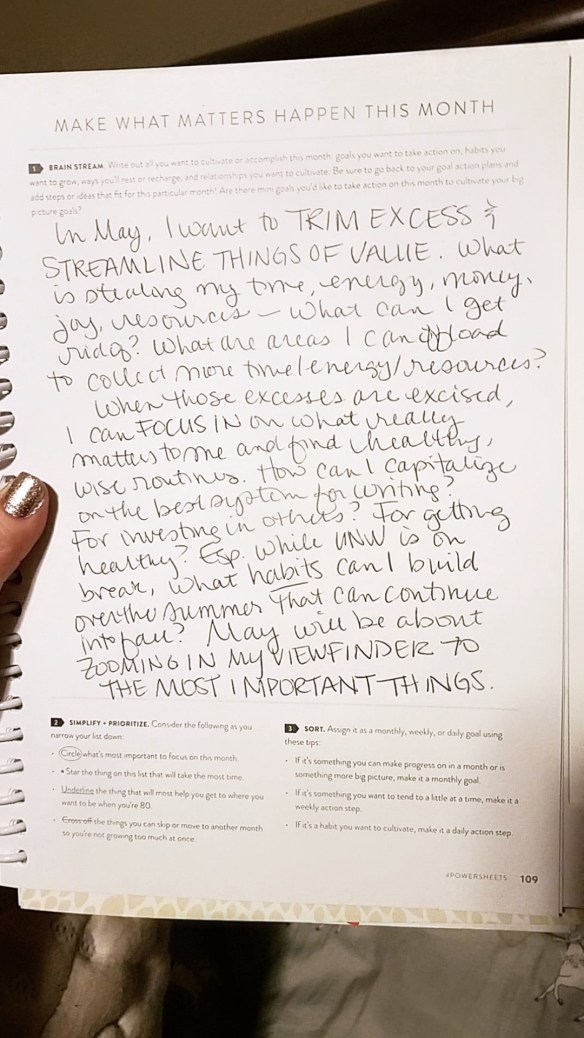 MAKE WHAT MATTERS HAPPEN THIS MONTH
1 BRAIN STREAM. Write out all you want to cultivate or accomplish this month: goals you want to take action on, habits you
want to grow, ways you'll rest or recharge, and relationships you want to cultivate. Be sure to go back to your goal action plans and
add steps or ideas that fit for this particular month! Are there mini goals you'd like to take action on this month to cultivate your big
picture goals?
In May, I want to TRIM EXCESS &
STREAMLINE THINGS OF VALUE. What
is stealing my time, energy, money,
joy, resources — what can I get
rid of? What are areas I can offload
to collect more time/energy/resources?
When those excesses are excised,
I can FOCUS IN on what really
matters to me and find healthy,
wise routines. How can I capitalize
on the best system for writing?
For investing in others? For getting
healthy? Esp. while UNW is on
break, what habits can I build
over the summer that can continue
into fall? May will be about
ZOOMING IN MY VIEWFINDER TO
THE MOST IMPORTANT THINGS.
2 SIMPLIFY + PRIORITIZE. Consider the following as you
narrow your list down:
• Circle what's most important to focus on this month.
• * Star the thing on this list that will take the most time.
• Underline the thing that will most help you get to where you
want to be when you're 80.
• Cross off the things you can skip or move to another month
so you're not growing too much at once.
3 SORT. Assign it as a monthly, weekly, or daily goal using
these tips:
• If it's something you can make progress on in a month or is
something more big picture, make it a monthly goal.
• If it's something you want to tend to a little at a time, make it a
weekly action step.
• If it's a habit you want to cultivate, make it a daily action step.
#POWERSHEETS 109